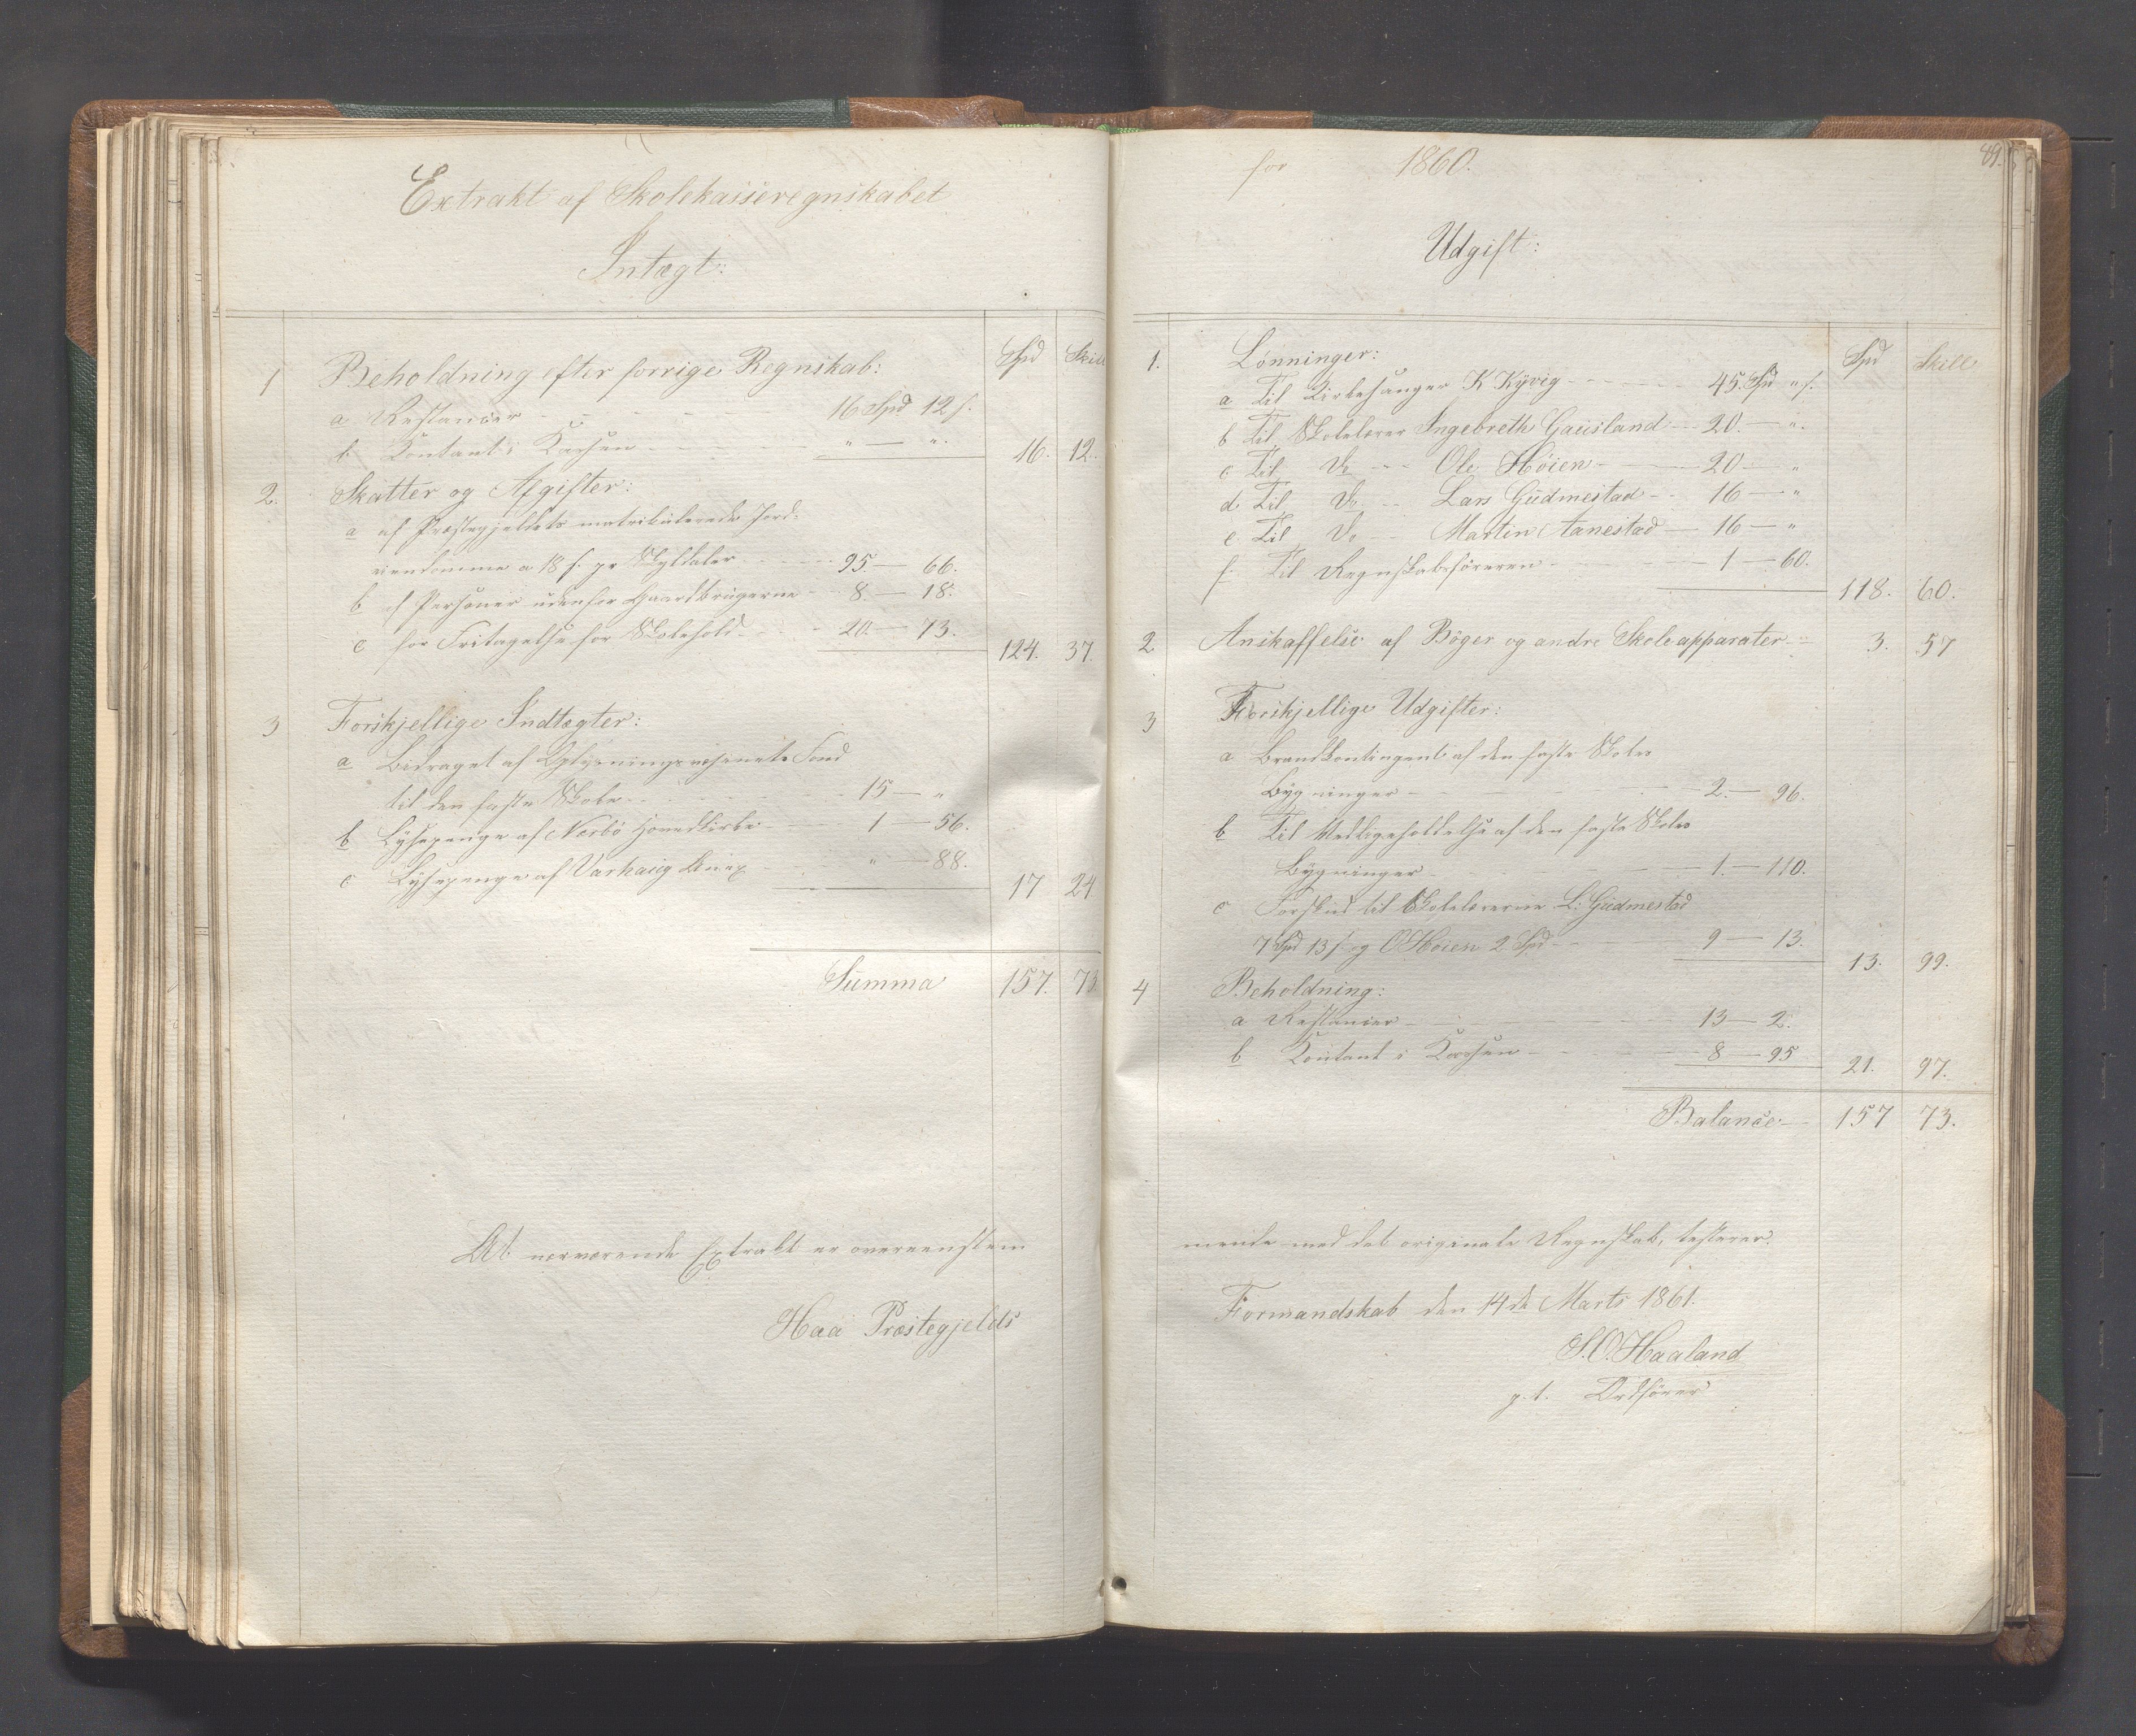 Extrakt af Skolekasseregnskabet
Intægt:
Spd Skill
1 Beholdning efter forrige Regnskab:
a Restancer - - - 16 Spd 12 s.
b Kontant i Kassen - - - " — ". 16. 12.
2. Skatter og Afgifter:
a af Præstegjeldets matrikulerede Jord-
eiendomme a 18 s. pr Skyldaler - - - 95 — 66.
b af Personer udenfor Gaardbrugerne - 8. — 18.
c for Fritagelse for Skolehold - - 20. — 73. 124. 37.
3 Forskjellige Indtægter:
a Bidraget af Oplysningsvæsenets Fond
til den faste Skole - - - 15 — "
b Lysepenge af Nærbø Hovedkirke - 1 — 56.
c Lysepenge af Varhaug Anex - " — 88. 17 24
Summa 157. 73
At nærværende Extrakt er overeenstem
Haa Præstegjelds
for 1860. 89.
Udgift:
Spd Skill
1. Lønninger:
a Til Kirkesanger K Kyvig - - - 45. Spd " s.
b Til Skolelærer Ingebreth Gausland - - 20. — ".
c Til Do - - Ole Høien - 20 — "
d Til Do - - Lars Gudmestad - - 16 — "
e Til Do - - Martin Aanestad - 16 — "
f. Til Regnskabsføreren - - - 1 — 60. 118. 60.
2 Anskaffelse af Bøger og andre Skoleapparater - 3. 57
3 Forskjellige Udgifter:
a Brandkontingent af den faste Skoles
Bygninger - - - 2. — 96.
b Til Vedligeholdelse af den faste Skoles
Bygninger - - - 1. — 110.
c Forskud til Skolelærerne L: Gudmestad
7 Spd 13 s og O Høien 2 Spd - - 9 — 13. 13. 99.
4 Beholdning:
a Restancer - - - 13 — 2.
b Kontant i Kassen - - - 8 — 95 21. 97.
Balance - 157 73.
mende med det originale Regnskab, testerer.
Formandskab den 14de Marts 1861.
S. O. Haaland
p. t. Ordfører